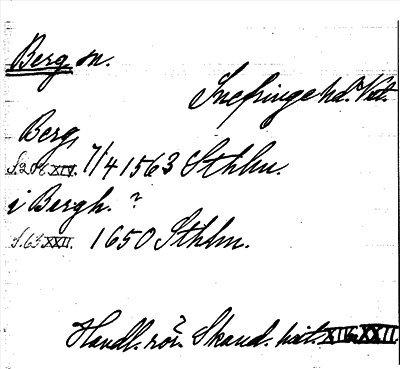 Berg sn.
Snefringe hd. Vstl.
Berg,
S. 208 XIV. 7/4 1563 Sthlm.
i Bergh. ?
S. 63 XXII. 1650 Sthlm.
Handl. rör. Skand. hist. XIV. XXII.